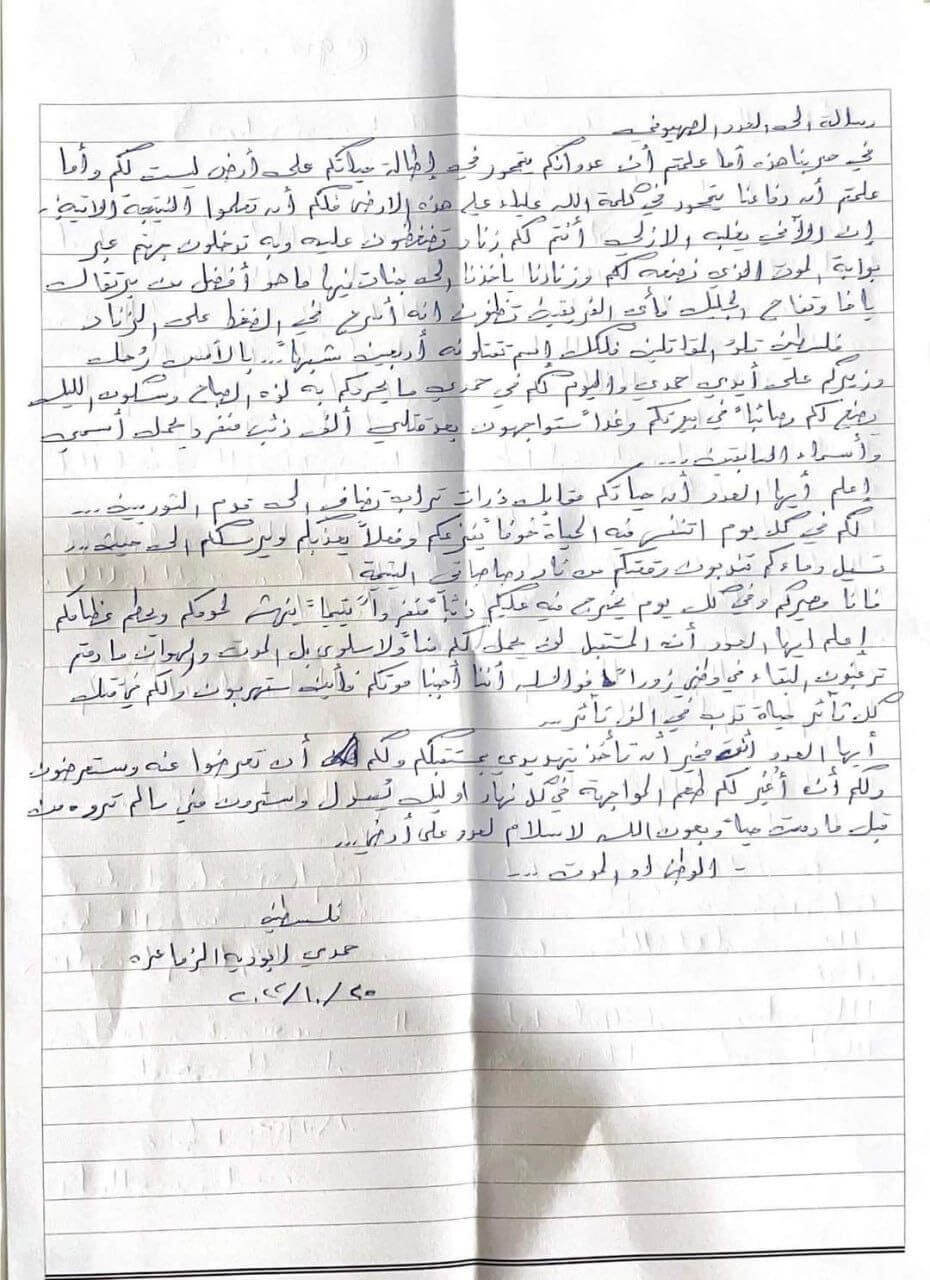 رسالة الى العدو الصهيوني
في حربنا هذه أما علمتم أن عدوانكم يتمحور في إطالة حياتكم على أرض ليست لكم وأما
علمتم أن دفاعنا يتمحور في كلمة الله علياء على هذه الارض فلكم أن تعلموا النتيجة الاتية
إن يغلب الازلي أنتم لكم زناد تضغطون عليه وبه توخلون جهنم عبر
بوابة الموت الذي نصنعه لكم وزنادنا يأخذنا الى جنات فيها ما هو أفضل من برتقال
يافا وتفاح الجليل فأي الفريقين تظنون انه أسرع في الضغط على الزناد
فلسطين تلد المقاتلين فلكل اسم تقتلونه أربعين شبيهاً... بالأمس
على أيدي حمدي واليوم لكم في حمدي ما يحرمكم به لذه الصباح وسكون الليل
في وغداً ستواجهون بعد قتلي ألف ذئب منفرد يحمل أسمي
وأسماء السابقين....
إعلم أيها العدو أن حياتكم مقابل ذرات تراب تضاف الى قدم ...
لكم في كل يوم اتنفس فيه الحياة خوفاً يفزعكم وفعلاً يعذبكم ويرسلكم الى حيث...
تسيل دماءكم من نار رصاصاتي اليتيمة
فانا مصيركم وفي كل يوم يخرج فيه عليكم ذئباً منفرداً يتيماً ينهش لحومكم ويحطم عظامكم
إعلم ايها العدو أن المستقبل لن يحمل لكم مناً ولا سلوى بل الموت والهوان ما دمتم
ترغبون البقاء في وطني زوراً فوالله أننا أحببنا موتكم فأين ستهربون ولكم في قتل
كل ثائر حياة تدب في الف ثائر...
أيها العدو أنت مخير أن تأخذ تهديدي بمستقبلكم ولكم أن تعرضوا عنه وستعرضون
ولكم أن أغير لكم طعم المواجهة في كل نهار او ليل وسترون مني ما لم تروه من
قبل ما دمت حياً وبعون الله لا سلام لعدو على أرضي...
- الوطن او الموت ...
فلسطين
حمدي ابودية الزماعره
٢٠٢٣/١٠/٢٥